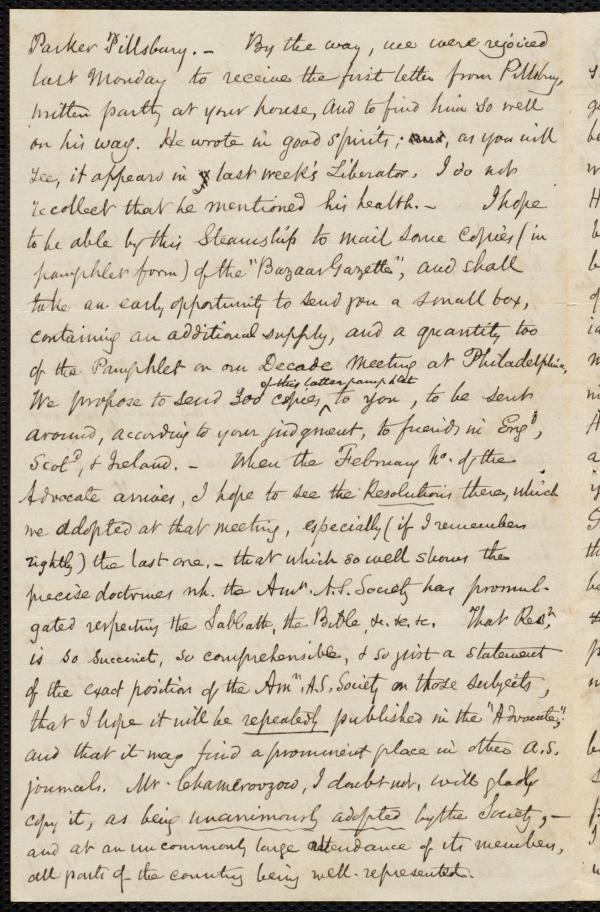 Parker Pillsbury. – By the way, we were rejoiced
last Monday to receive the first letter from Pillsbury,
written partly at your house, and to find him so well
on his way. He wrote in good spirits; , as you will
see, it appears in last week's Liberator. I do not
recollect that he mentioned his health. – I hope
to be able by this Steamship to mail some copies (in
pamphlet form) of the "Bazaar Gazette", and shall
take an early opportunity to send you a small box,
containing an additional supply, and a quantity too
of the Pamphlet on our Decade Meeting at Philadelphia,
of this latter pamphlet
We propose to send 300 copies ^ to you, to be sent
around, according to your judgment, to friends in Engd,
Scotd, & Ireland. – When the February No. of the
Advocate arrives, I hope to see the Resolutions there, which
we adopted at that meeting, especially (if I remember
rightly) the last one, – that which so well shows the
precise doctrines wh. the Amn. A.S. Society has promul-
gated respecting the Sabbath, the Bible, &c. &c. &c. That Resn,
is so succinct, so comprehensible, & so just a statement
of the exact position of the Amn. A.S. Society on those subjects,
that I hope it will be repeatedly published in the "Advocate",
and that it may find a prominent place in other A.S.
journals. Mr. Chamerovzow, I doubt not, will gladly
copy it, as being unanimously adopted by the Society, –
and at an uncommonly large attendance of its members,
all parts of the country being well-represented.